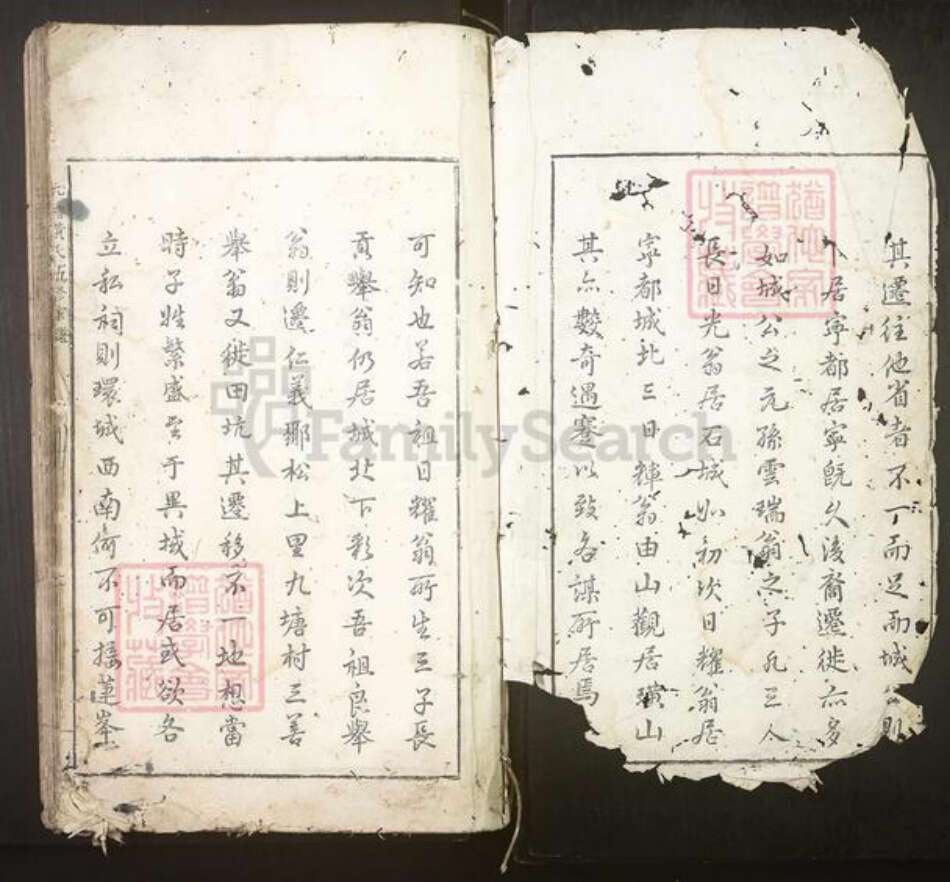 其遷往他省者不一而足而城公則
卜居寧都居寧既久後裔遷徙亦多
如城公之元孫雲瑞翁之子凡三人
長曰光翁居石城如初次曰耀翁居
寧都城北三曰輝翁由山觀居璜山
其亦數奇遇蹇以致各謀所居焉
可知也若吾祖曰耀翁所生三子長
貢舉翁仍居城北下彩次吾祖良舉
翁則遷仁義鄉松上里九塘村三善
舉翁又徙田坑其遷移不一地想當
時子姓繁盛至于異域而居或欲各
立私祠則環城西南何不可接蓮峯
FamilySearch